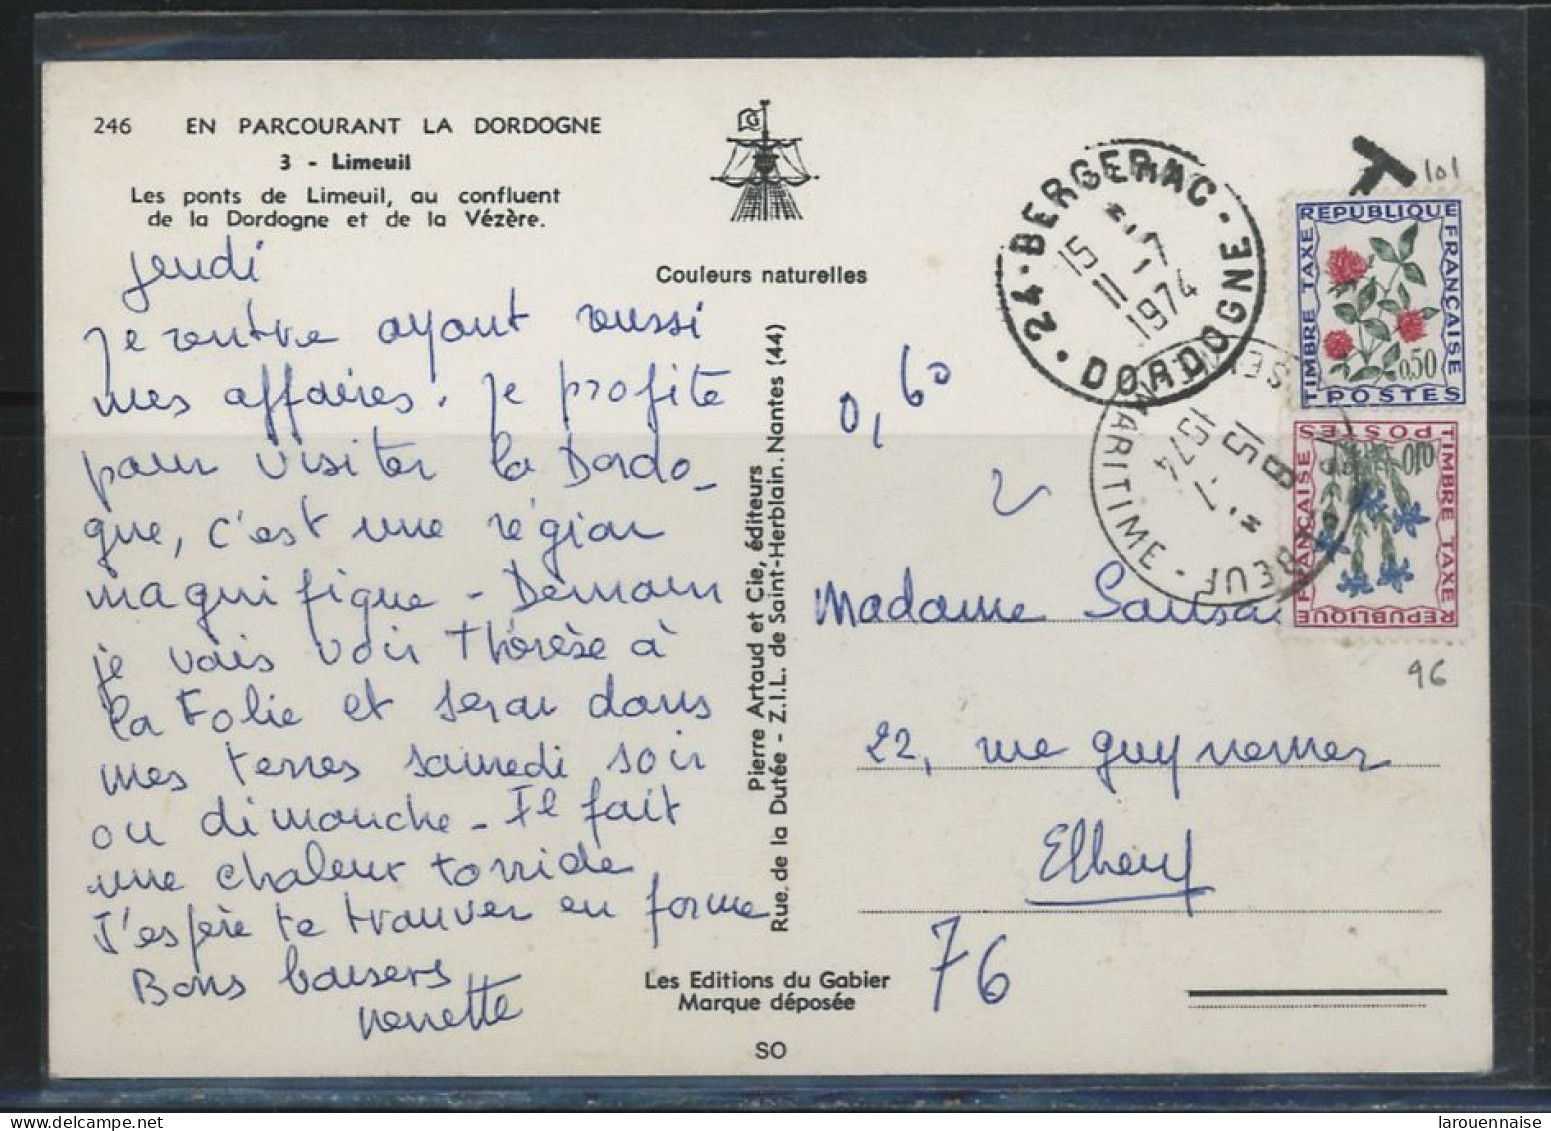 246 EN PARCOURANT LA DORDOGNE
3 - Limeuil
Les ponts de Limeuil, au confluent
de la Dordogne et de la Vézère.
Couleurs naturelles
jeudi
Je rentre ayant réussi
mes affaires. Je profite
pour visiter la Dordo_
gne, c'est une région
magnifique - Demain
je vais voir Thérèse à
La Folie et serai dans
mes terres samedi soir
ou dimanche - Il fait
une chaleur torride
J'espère te trouver en forme
Bons baisers
nenette
Pierre Artaud et Cie, éditeurs
Rue de la Dutée - Z.I.L. de Saint-Herblain. Nantes (44)
Les Editions du Gabier
Marque déposée
SO
24 - BERGERAC - DORDOGNE
15 H
11-7
1974
T
101
REPUBLIQUE FRANÇAISE
TIMBRE TAXE
0,50
POSTES
TIMBRE TAXE
POSTES
0,10
REPUBLIQUE FRANÇAISE
MARITIME
BEUF
96
0,60
Madame
22, rue guynemer
Elbeuf
76
larouennaise